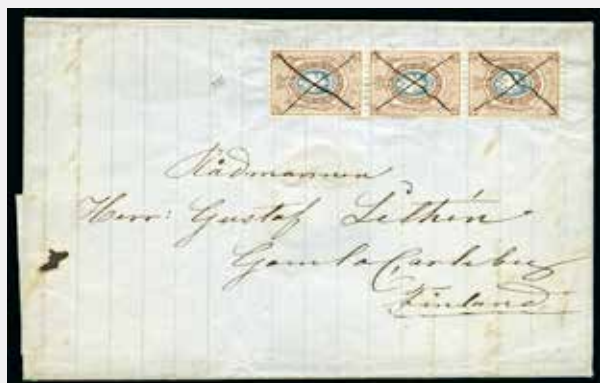 Rådmannen
Herr: Gustaf Lithén
Gamla Carleby
Finland